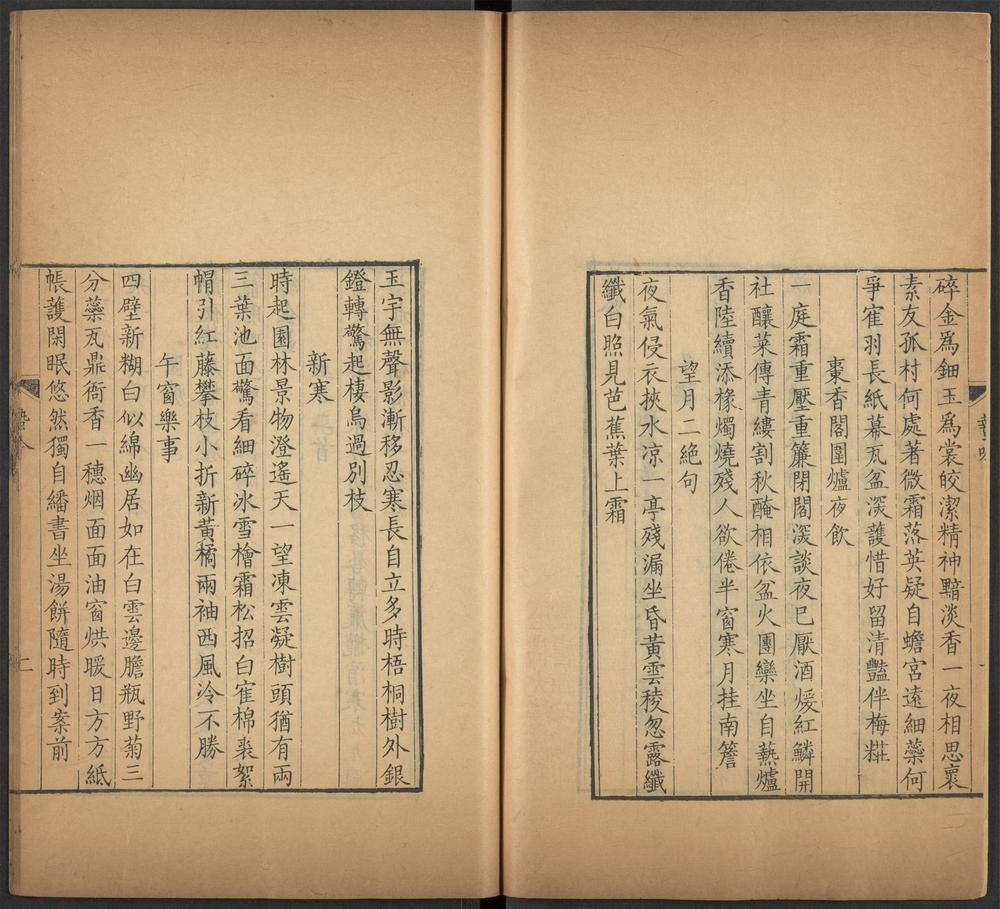 碎金爲鈿玉爲裳皎潔精神黯淡香一夜相思裏
素友孤村何處著微霜落英疑自蟾宮遠細蘂何
爭寉羽長紙幕瓦盆深護惜好留清豔伴梅粧
棗香閣圍爐夜飲
一庭霜重壓重簾閉閣深談夜巳厭酒煖紅鱗開
社釀菜傳青縷割秋醃相依盆火團欒坐自熱爐
香陸續添椽燭燒殘人欲倦半窗寒月挂南簷
望月二絕句
夜氣侵衣挾水凉一亭殘漏坐昏黃雲稜忽露纖
纖白照見芭蕉葉上霜
玉宇無聲影漸移忍寒長自立多時梧桐樹外銀
鐙轉驚起棲烏過別枝
新寒
時起園林景物澄遙天一望凍雲凝樹頭猶有兩
三葉池面驚看細碎冰雪檜霜松招白寉棉裘絮
帽引紅藤攀枝小折新黃橘兩袖西風冷不勝
午窗樂事
四壁新糊白似綿幽居如在白雲邊膽瓶野菊三
分蘂瓦鼎衙香一穗烟面面油窗烘暖日方方紙
帳護閑眠悠然獨自繙書坐湯餅隨時到案前
二